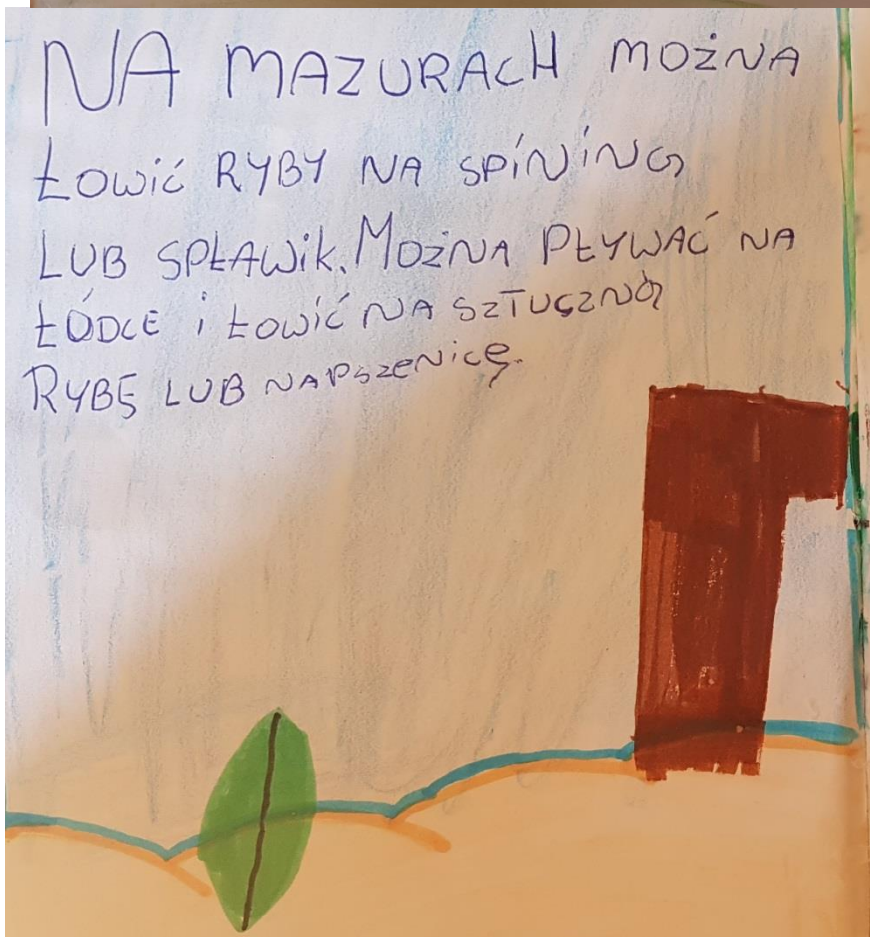 NA MAZURACH MOŻNA
ŁOWIĆ RYBY NA SPINING
LUB SPŁAWIK. MOŻNA PŁYWAĆ NA
ŁÓDCE i ŁOWIĆ NA SZTUCZNĄ
RYBĘ LUB NAPSZENICĘ.